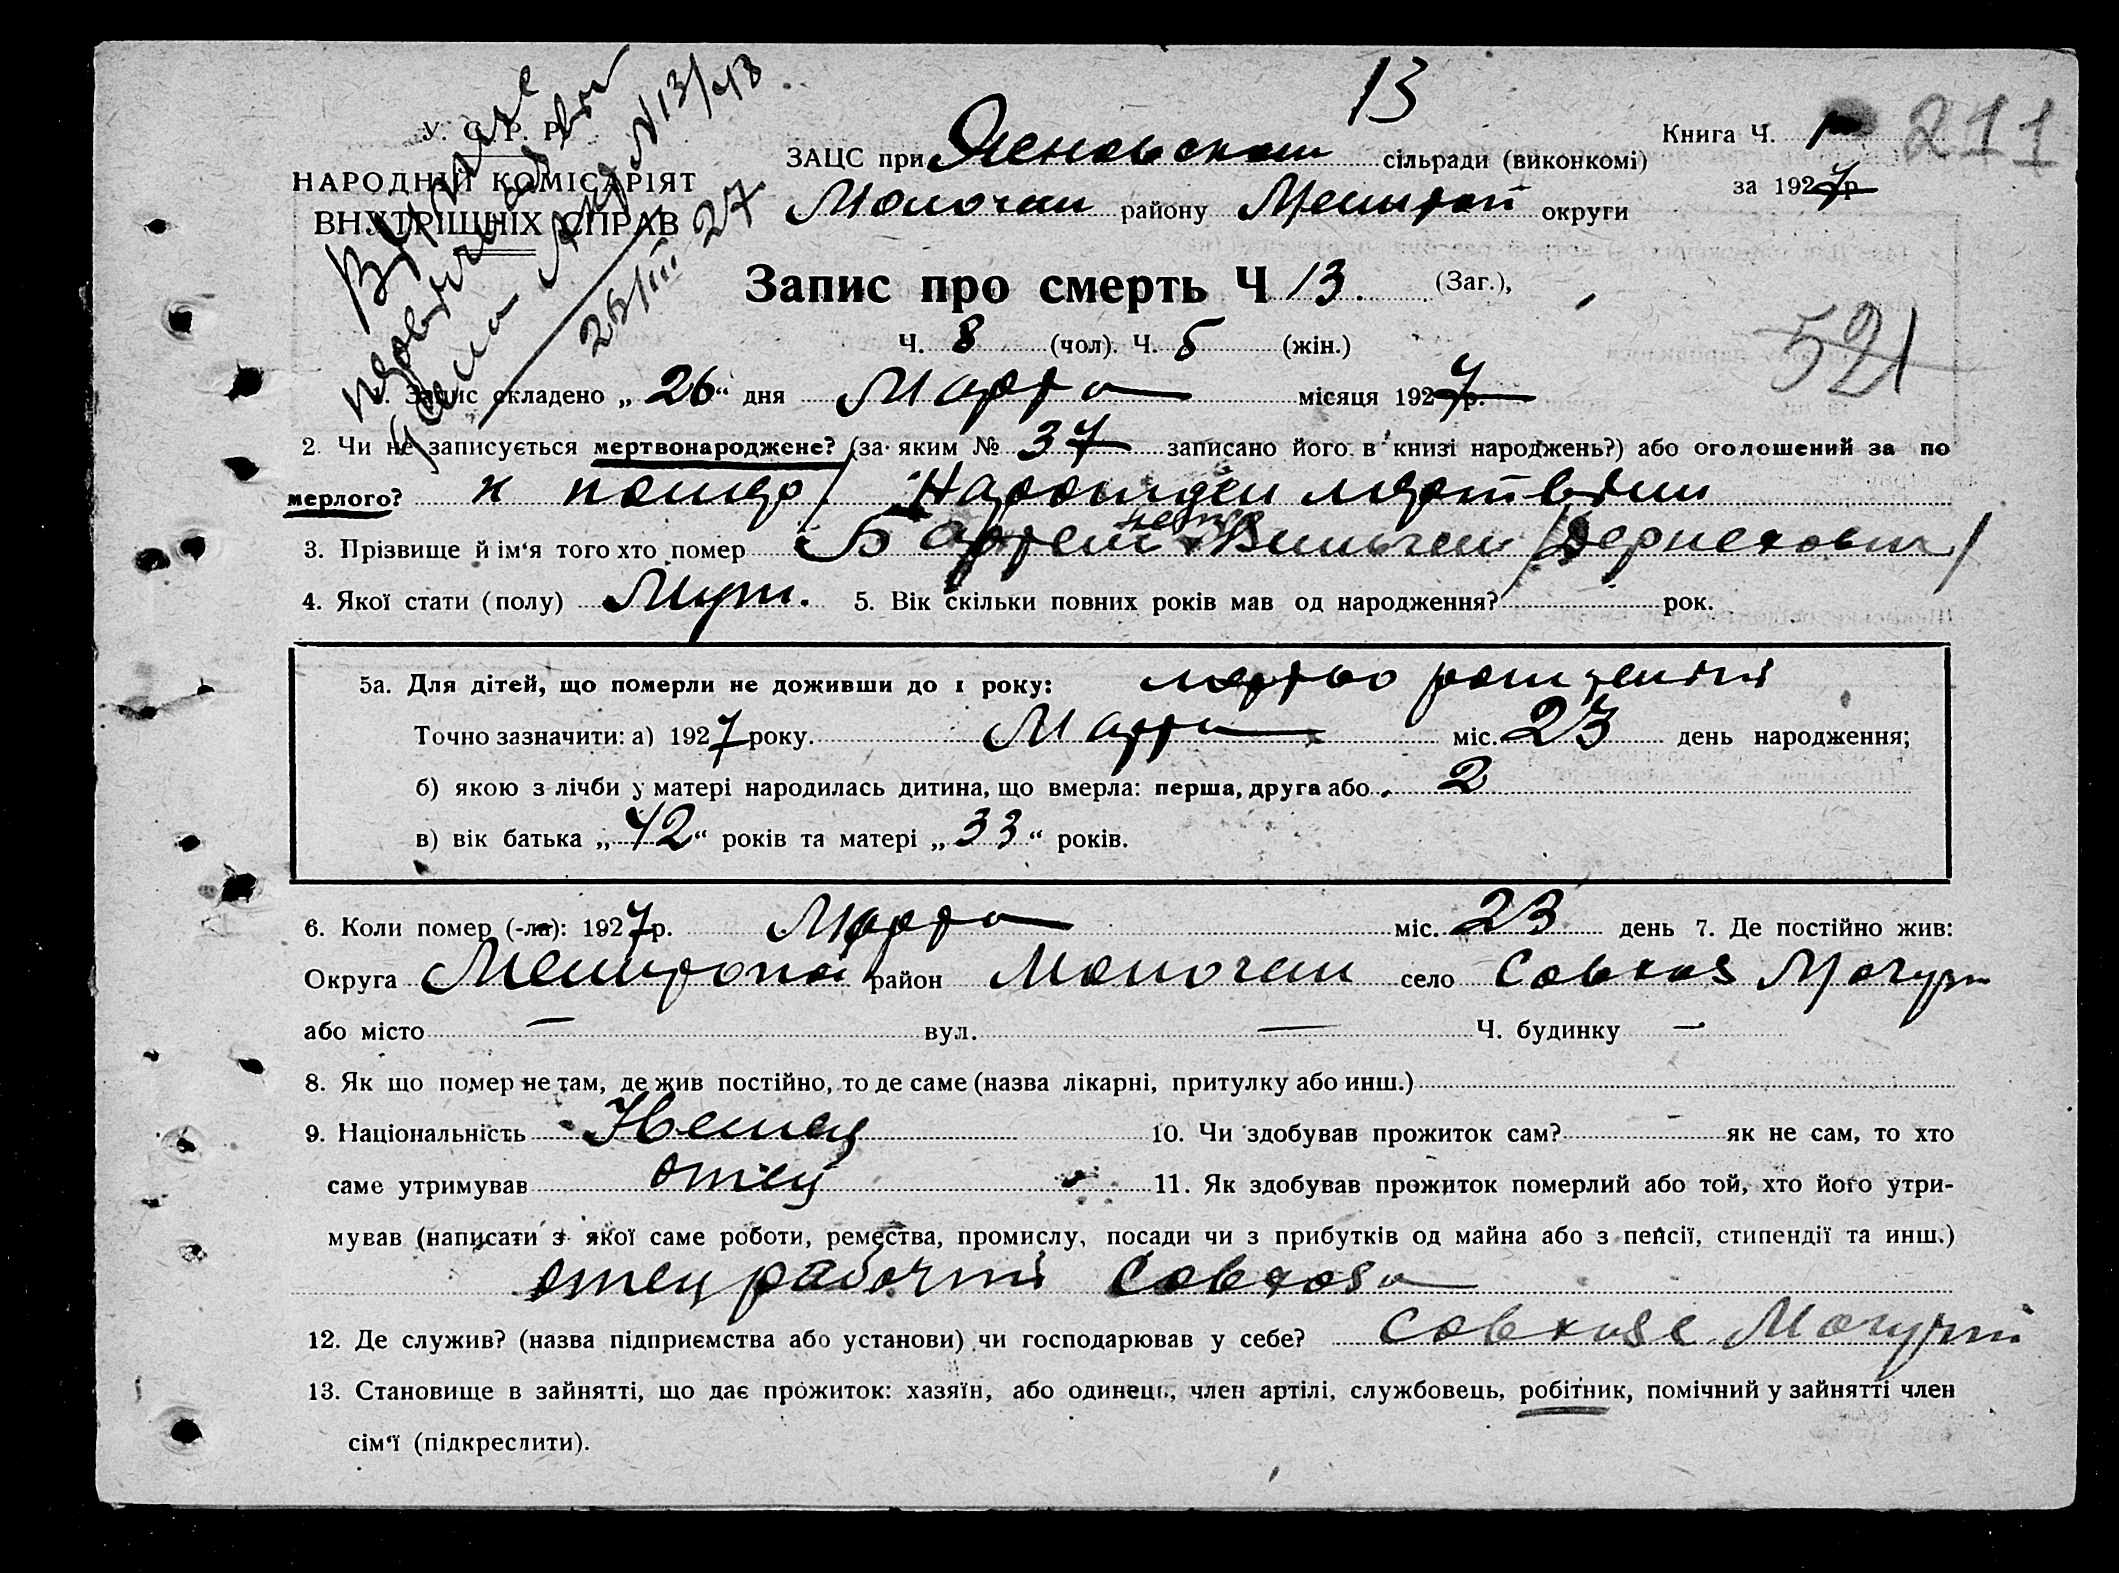 13
У. С. Р. Р.
НАРОДНІЙ КОМІСАРІЯТ
ВНУТРІШНІХ СПРАВ
N 13/43
26/III 27
ЗАЦС при сільради (виконкомі)
Молочан району Мелитоп округи
Книга Ч. 1
211
за 1927 р
Запис про смерть Ч 13 (Заг.),
Ч. 8 (чол). Ч. 5 (жін.)
521
1. Запис складено „ 26 “ дня Марта місяця 1927 р.
2. Чи не записується мертвонароджене? (за яким № 37 записано його в книзі народжень?) або оголошений за по
мерлого?
3. Прізвище й ім‘я того хто помер
4. Якої стати (полу) Муж. 5. Вік скільки повних років мав од народження? рок.
5а. Для дітей, що померли не доживши до 1 року:
Точно зазначити: а) 1927 року. Марта міс. 23 день народження;
б) якою з лічби у матері народилась дитина, що вмерла: перша, друга або 2
в) вік батька „ 42 “ років та матері „ 33 “ років.
6. Коли помер (-ла): 1927 р. Марта міс. 23 день 7. Де постійно жив:
Округа Мелитопол район Молочан село Совхоз
або місто — вул. — Ч. будинку —
8. Як що помер не там, де жив постійно, то де саме (назва лікарні, притулку або инш.)
9. Національність Немец 10. Чи здобував прожиток сам? як не сам, то хто
саме утримував отец 11. Як здобував прожиток померлий або той, хто його утри-
мував (написати з якої саме роботи, ремества, промислу, посади чи з прибутків од майна або з пенсії, стипендії та инш.)
отец рабочий Совхоза
12. Де служив? (назва підприємства або установи) чи господарював у себе? Совхозе
13. Становище в зайнятті, що дає прожиток: хазяїн, або одинець, член артілі, службовець, робітник, помічний у зайнятті член
сім‘ї (підкреслити).